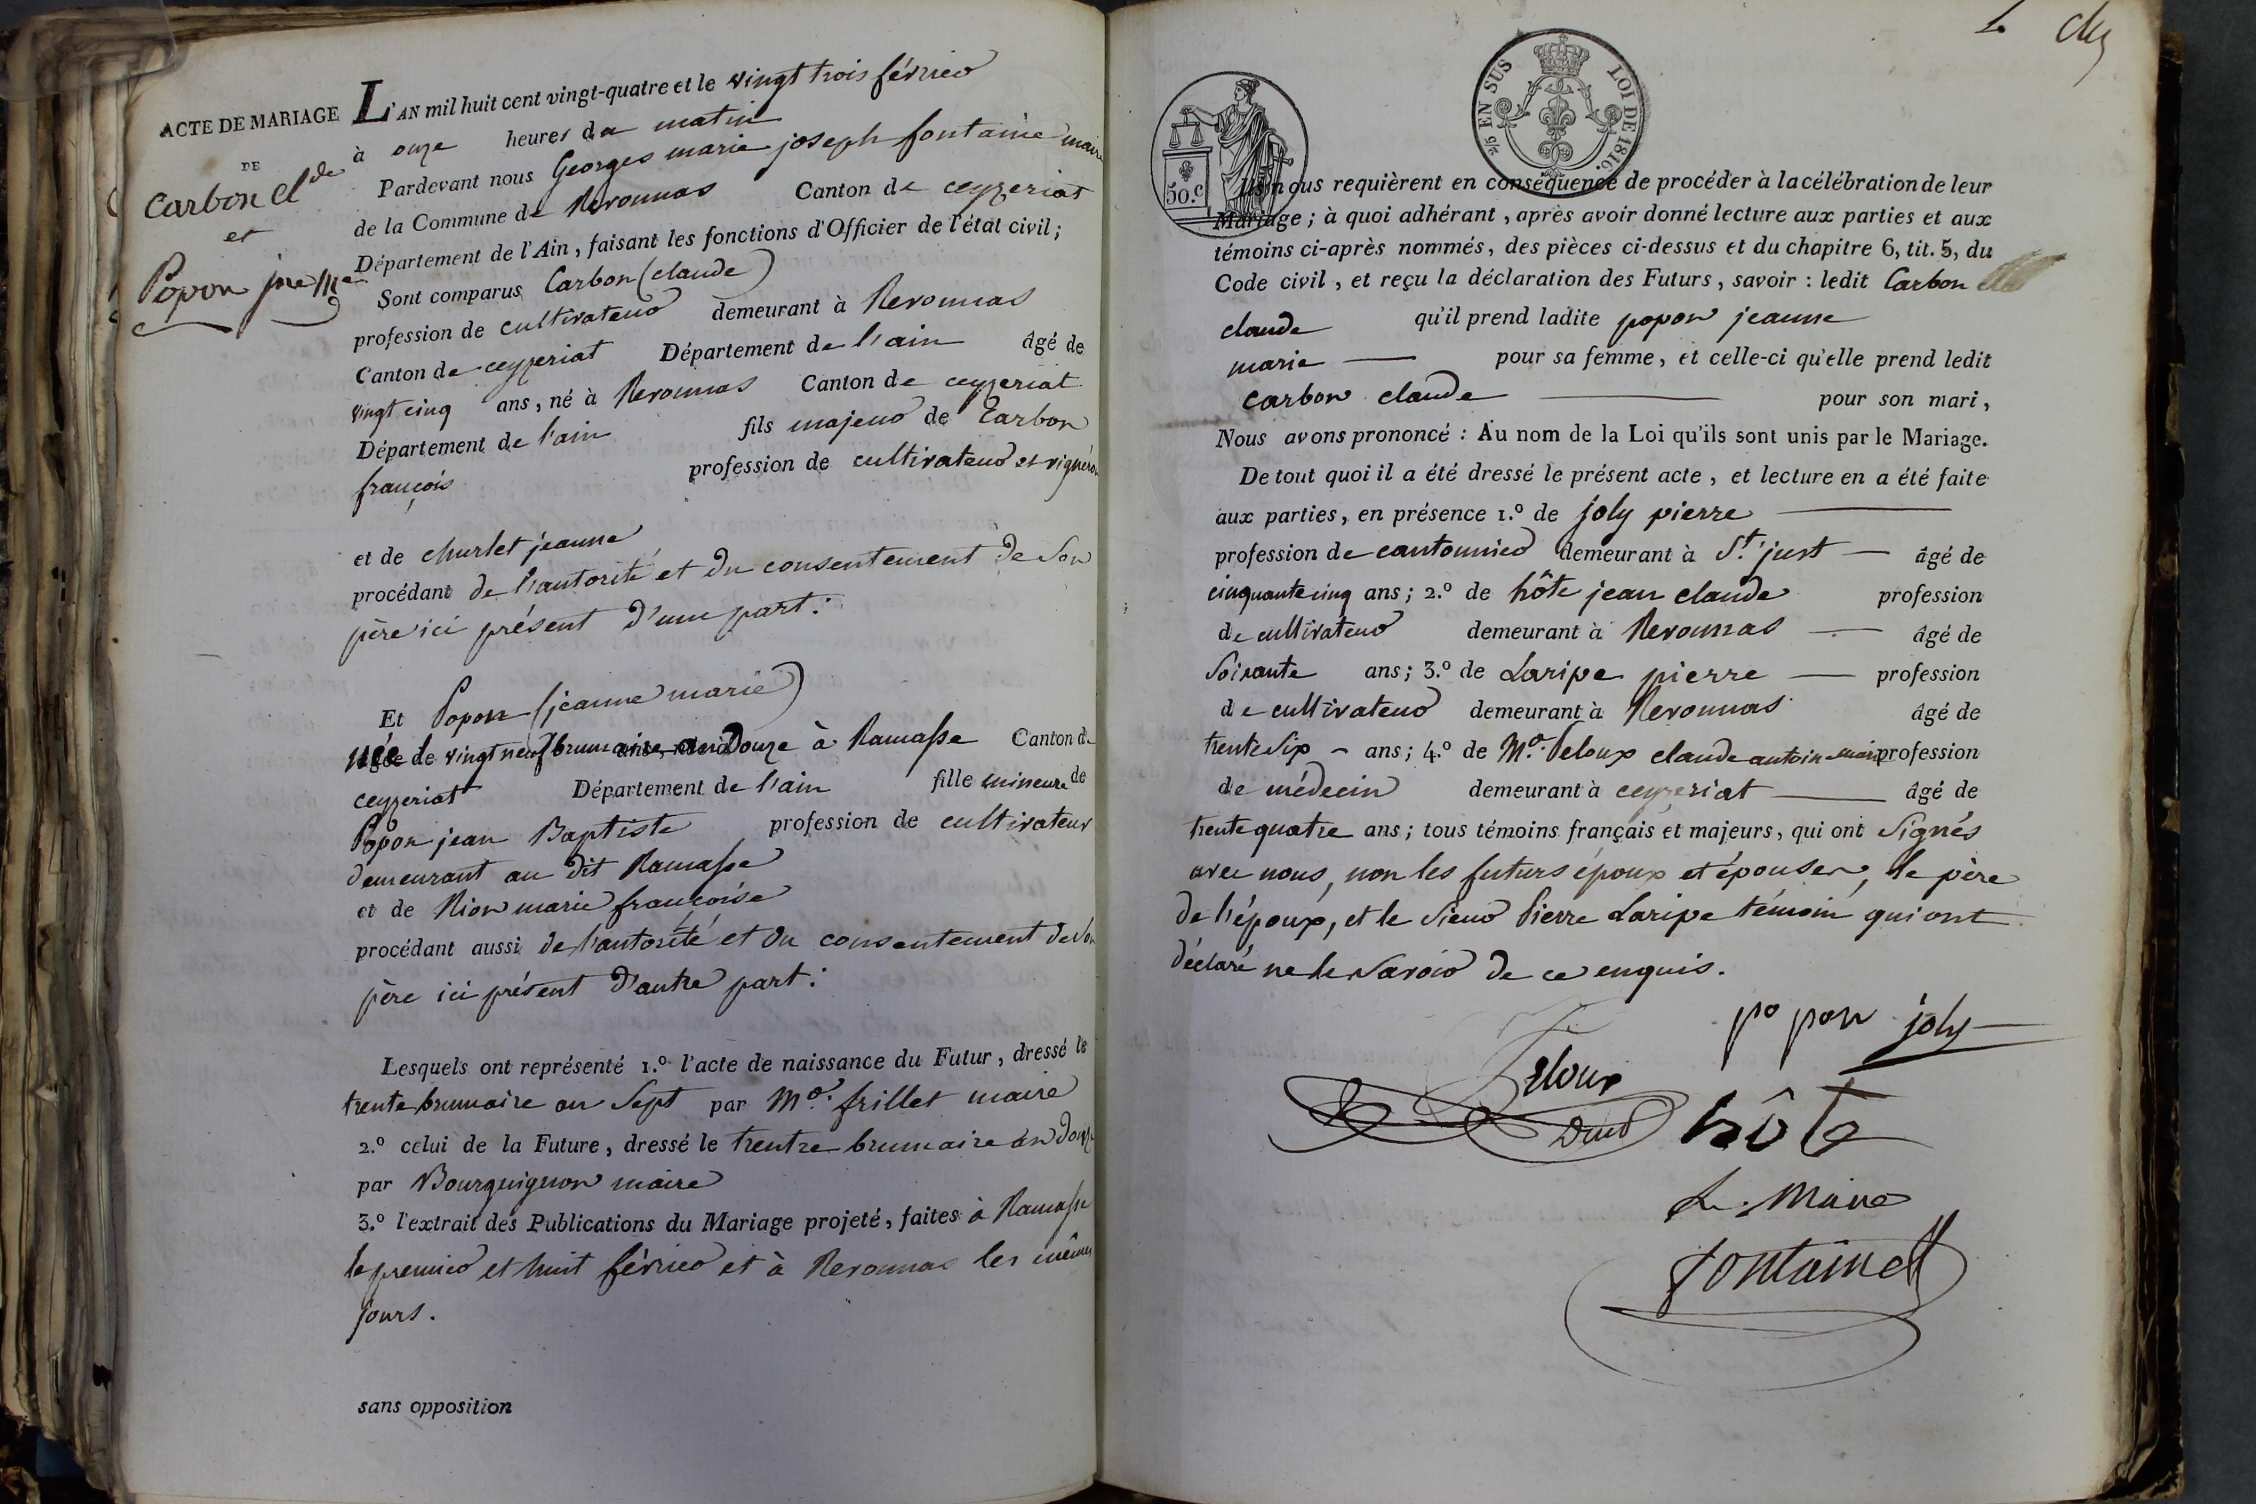 ACTE DE MARIAGE
DE
Carbon Cl.de
et
Popon jne Me
L'AN mil huit cent vingt-quatre et le vingt trois février
à onze heures du matin
Pardevant nous Georges marie joseph fontaine maire
de la Commune de Revonnas Canton de ceyzeriat
Département de l'Ain, faisant les fonctions d'Officier de l'état civil;
Sont comparus Carbon (claude)
profession de cultivateur demeurant à Revonnas
Canton de ceyzeriat Département de l'ain âgé de
vingt cinq ans, né à Revonnas Canton de ceyzeriat
Département de l'ain fils majeur de Carbon
françois profession de cultivateur et vigneron
et de churlet jeanne
procédant de l'autorité et du consentement de son
père ici présent d'une part.
Et Popon (jeanne marie)
née le vingt neuf brumaire an Douze à Ramasse Canton de
ceyzeriat Département de l'ain fille mineure de
Popon jean Baptiste profession de cultivateur
demeurant au dit Ramasse
et de Rion marie françoise
procédant aussi de l'autorité et du consentement de son
père ici présent d'autre part.
Lesquels ont représenté 1.º l'acte de naissance du Futur, dressé le
trente brumaire an Sept par Mr. frillet maire
2.º celui de la Future, dressé le trentre brumaire an Douze
par Bourguignon maire
3.º l'extrait des Publications du Mariage projeté, faites à Ramasse
le premier et huit février et à Revonnas les mêmes
jours.
sans opposition
50.c
5/5 EN SUS LOI DE 1816.
Ils nous requièrent en conséquence de procéder à la célébration de leur
Mariage; à quoi adhérant, après avoir donné lecture aux parties et aux
témoins ci-après nommés, des pièces ci-dessus et du chapitre 6, tit. 5, du
Code civil, et reçu la déclaration des Futurs, savoir : ledit Carbon
claude qu'il prend ladite popon jeanne
marie pour sa femme, et celle-ci qu'elle prend ledit
carbon claude pour son mari,
Nous avons prononcé : Au nom de la Loi qu'ils sont unis par le Mariage.
De tout quoi il a été dressé le présent acte, et lecture en a été faite
aux parties, en présence 1.º de joly pierre
profession de cantonnier demeurant à St. just âgé de
cinquante cinq ans; 2.º de hôte jean claude profession
de cultivateur demeurant à Revonnas âgé de
Soixante ans; 3.º de Laripe pierre profession
de cultivateur demeurant à Revonnas âgé de
trente Six ans; 4.º de Mr. Peloux claude antoine marie profession
de médecin demeurant à ceyzeriat âgé de
trente quatre ans; tous témoins français et majeurs, qui ont Signés
avec nous, non les futurs époux et épouse, le père
de l'époux, et le sieur Pierre Laripe témoin qui ont
déclaré ne le savoir de ce enquis.
po pon joly
Peloux
hôte
Le Maire
fontaine